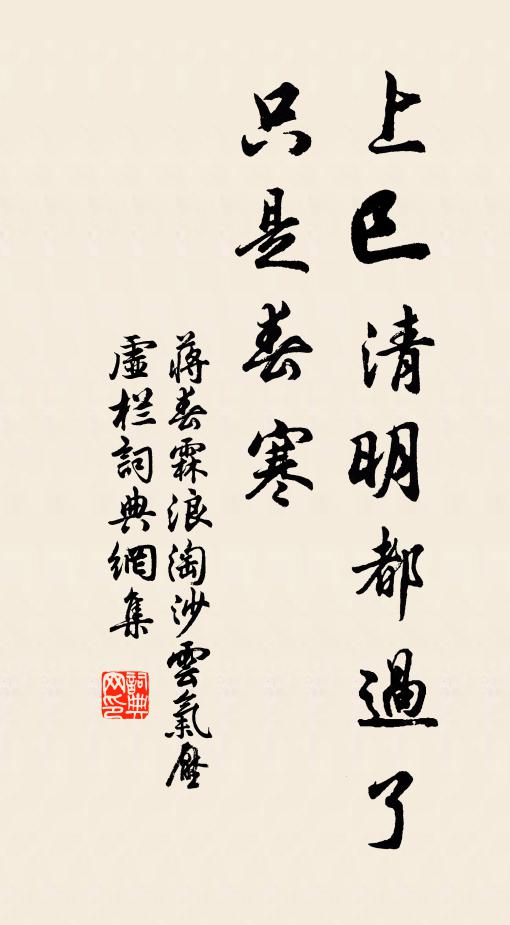 上巳清明都過了
只是春寒
蔣春霖浪淘沙雲氣壓
虛栏詞典網集
詞典网印